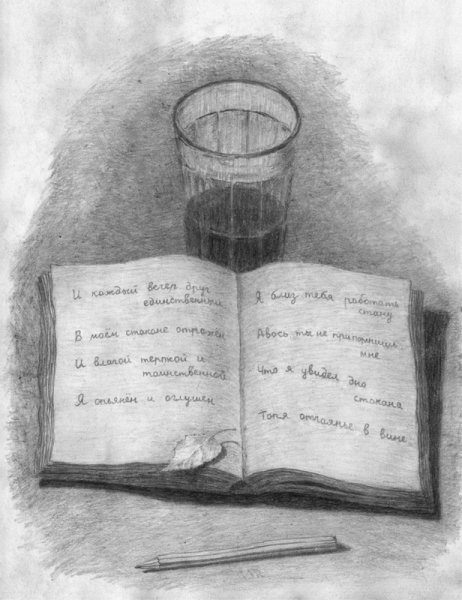 И каждый вечер друг
единственный
В моём стакане отражён
И влагой терпкой и
таинственной
Я опьянён и оглушен
Я близ тебя работать
стану
Авось, ты не припомнишь
мне
Что я увидел дно
стакана
Топя отчаянье в вине